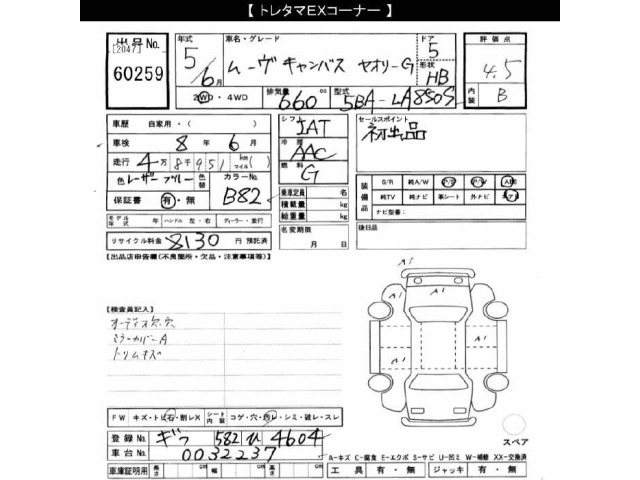 【 トレタマEXコーナー 】
出品 No.
[2047]
60259
年式 5年 6月
車名・グレード ムーヴ キャンバス セオリーG
ドア 5
形状 HB
2WD・4WD
排気量 660 cc
型式 5BA-LA850S
評価点 4.5
内装 B
車歴 自家用・( )
車検 8年 6月
走行 4万8千951 km マイル( )
色 レーザーブルー
色替
カラーNo. B82
保証書 有・無
シフト IAT
冷房 AAC
燃料 G
乗車定員 名
積載量 kg
総重量 kg
名変期限 月 日
セールスポイント 初出品
装備品
S/R 純A/W P/S P/W ABS
純TV 純ナビ 革シート 外ナビ エアB
ナビ型番:
後日品
モデル年式 年 ハンドル 左・右 ディーラー・並行
リサイクル料金 8130 円 預託済
【出品店申告欄(不良箇所・欠品・注意事項等)】
【検査員記入】
オーディオ欠.穴
ミラーカバーA
トリムキズ
A1
A1
A1
A1
A1
FW キズ・トビ石・割レX
シート内装 コゲ・穴・切レ・シミ・破レ・スレ
登録No. ギフ 582 ひ 4604
車台No. 0032237
スペア
A-キズ C-腐食 E-エクボ S-サビ U-凹ミ W-補修 XX-交換済
車庫証明用 長さ cm 幅 cm 高さ cm
工具 有・無
ジャッキ 有・無